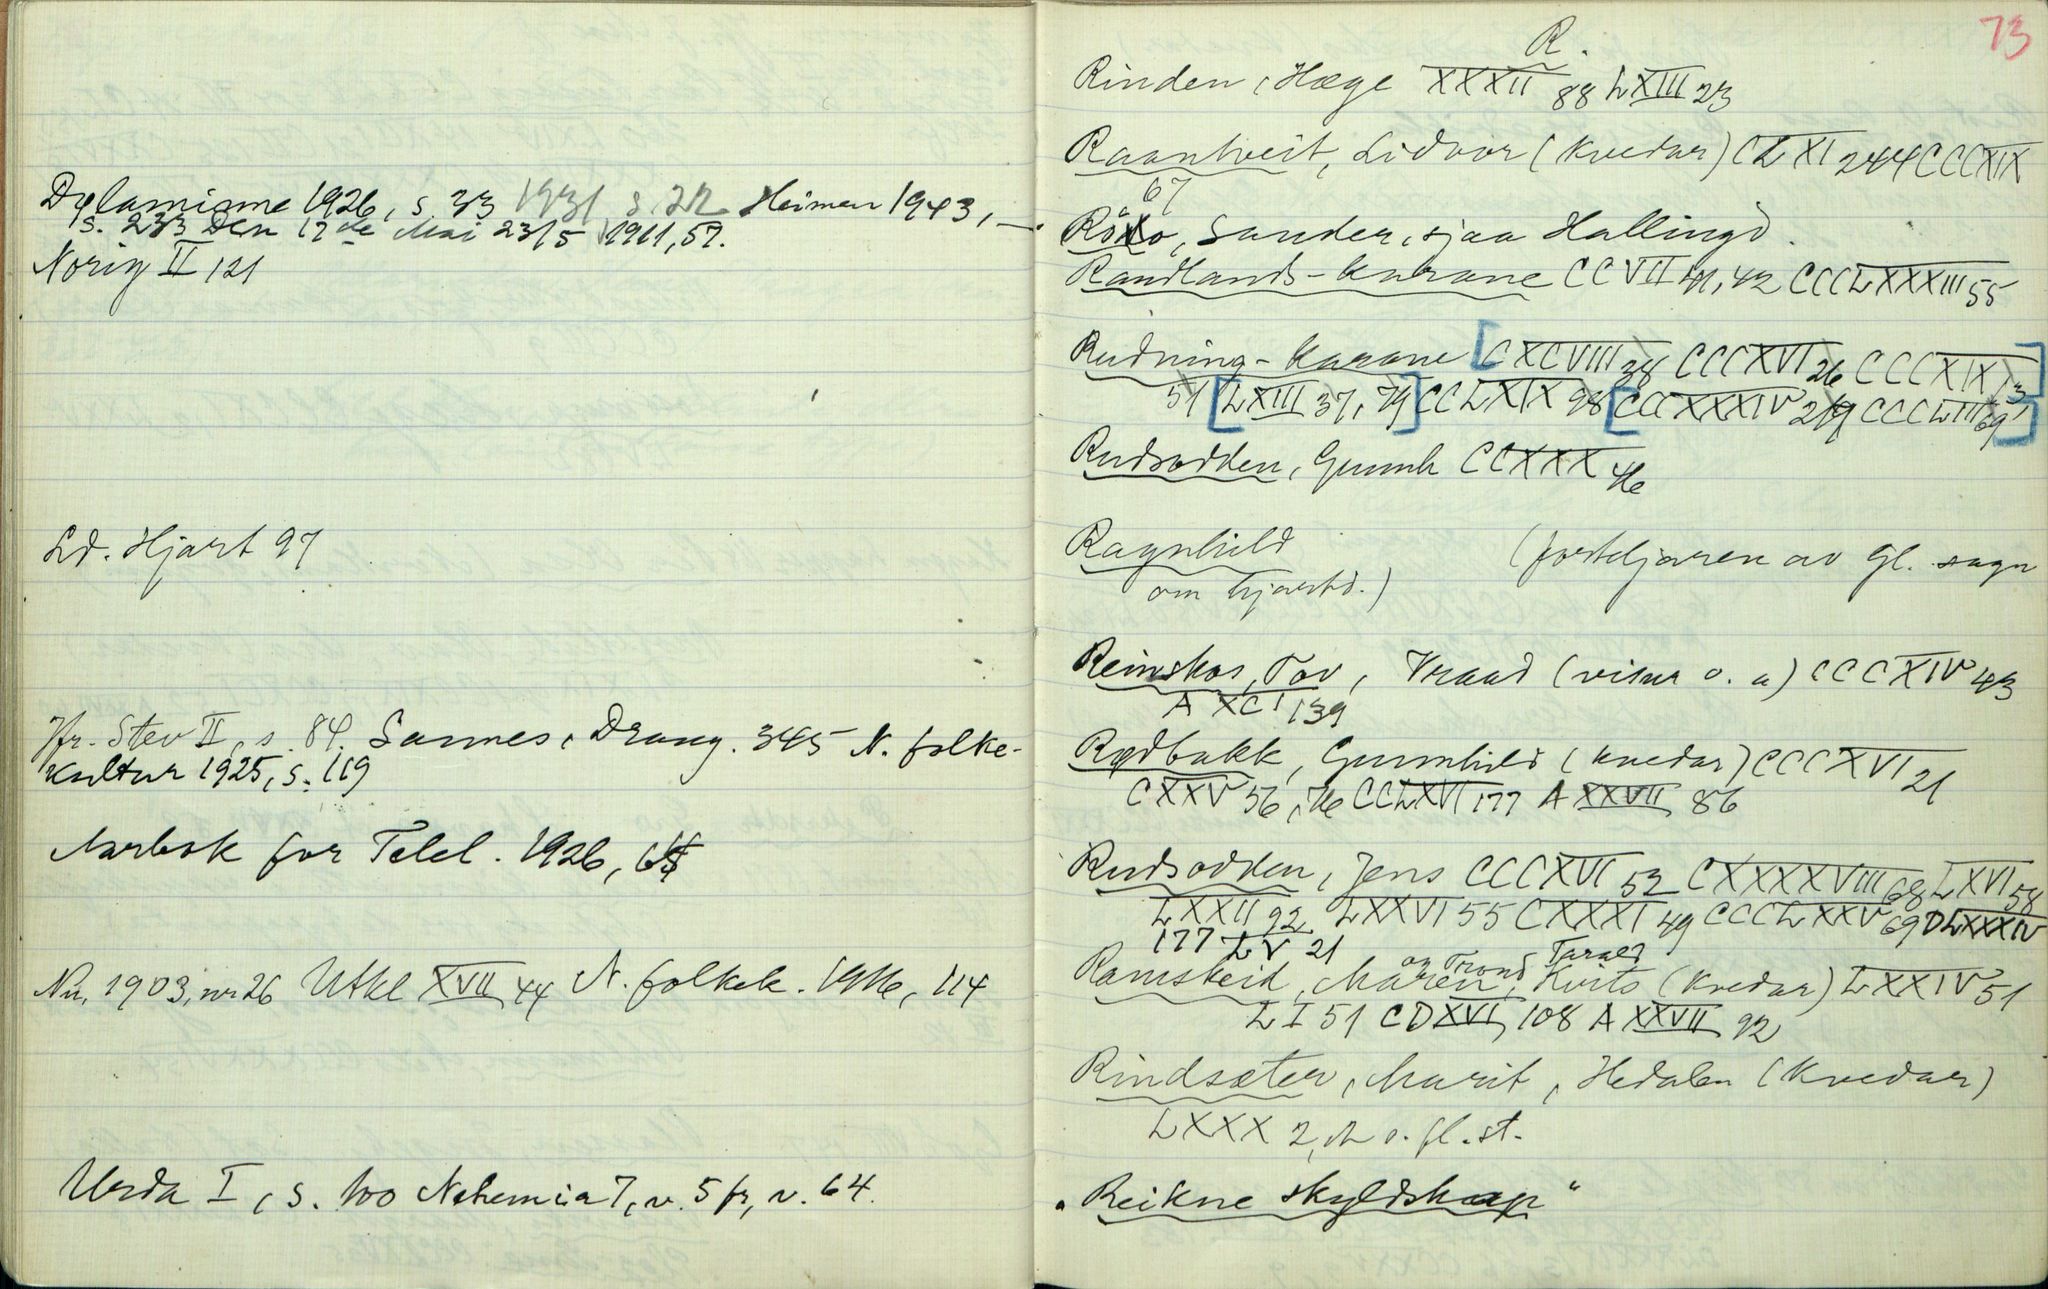 Dølaminne 1926, s 33 1931 s. 22 Heimen 1943, —
s. 233 Den 17de Mai 23/5 1911, 57.
Norig II 121
Ld. Hjart 97
Jfr. Stev II, s. 84. Sannes, Draug. 345 N. folke-
kultur 1925, s. 119
Aarbok for Telel. 1926,
Nu, 1903, nr 26 Utkl XVII 44 N. folkek. 1916, 114
Urda I, s. 100 Nehemia 7, v. 5 fr, v. 64.
73
R.
Rinden, Hæge XXXII 88 LXIII 23
Raantveit, Lidvor (Kvedar) CLXI 244 CCCXIX
67
Röno, Sander, sjaa Hallingd.
Raudlands-karane CCVII 41, 42 CCCLXXXIII 55
Rudning-karane [CXCVIII 38 CCCXVI 26 CCCXIX 13]
51 [LXIII 37, 79] CCLXIX 98 [CCCXXXIV 219 CCCLIII 69]
Rudsodden, Gunnh CCXXX 46
Ragnhild (forteljaren av Gl. sogn
om Hjartd.)
Reinskos, Tov, Vraad (visur o. a) CCCXIV 43
A XCI 139
Rødbakk, Gunnhild (Kvedar) CCCXVI 21
CXXV 56, 76 CCLXVI 177 A XXVII 86
Rudsodden, Jens CCCXVI 52 CXXXXVIII 68 LXVI 58
LXXII 92 LXXVI 55 CXXXI 49 CCCLXXV 69 DLXXXIV
177 LV 21
og Trond Tarald
Ramskeid, Maren, Kvits (Kvedar) LXXIV 51
LI 51 CDXVI 108 A XXVII 92
Rindsæter, Marit, Hedalen (Kvedar)
LXXX 2, o. fl. st.
"Reikne skyldskap"